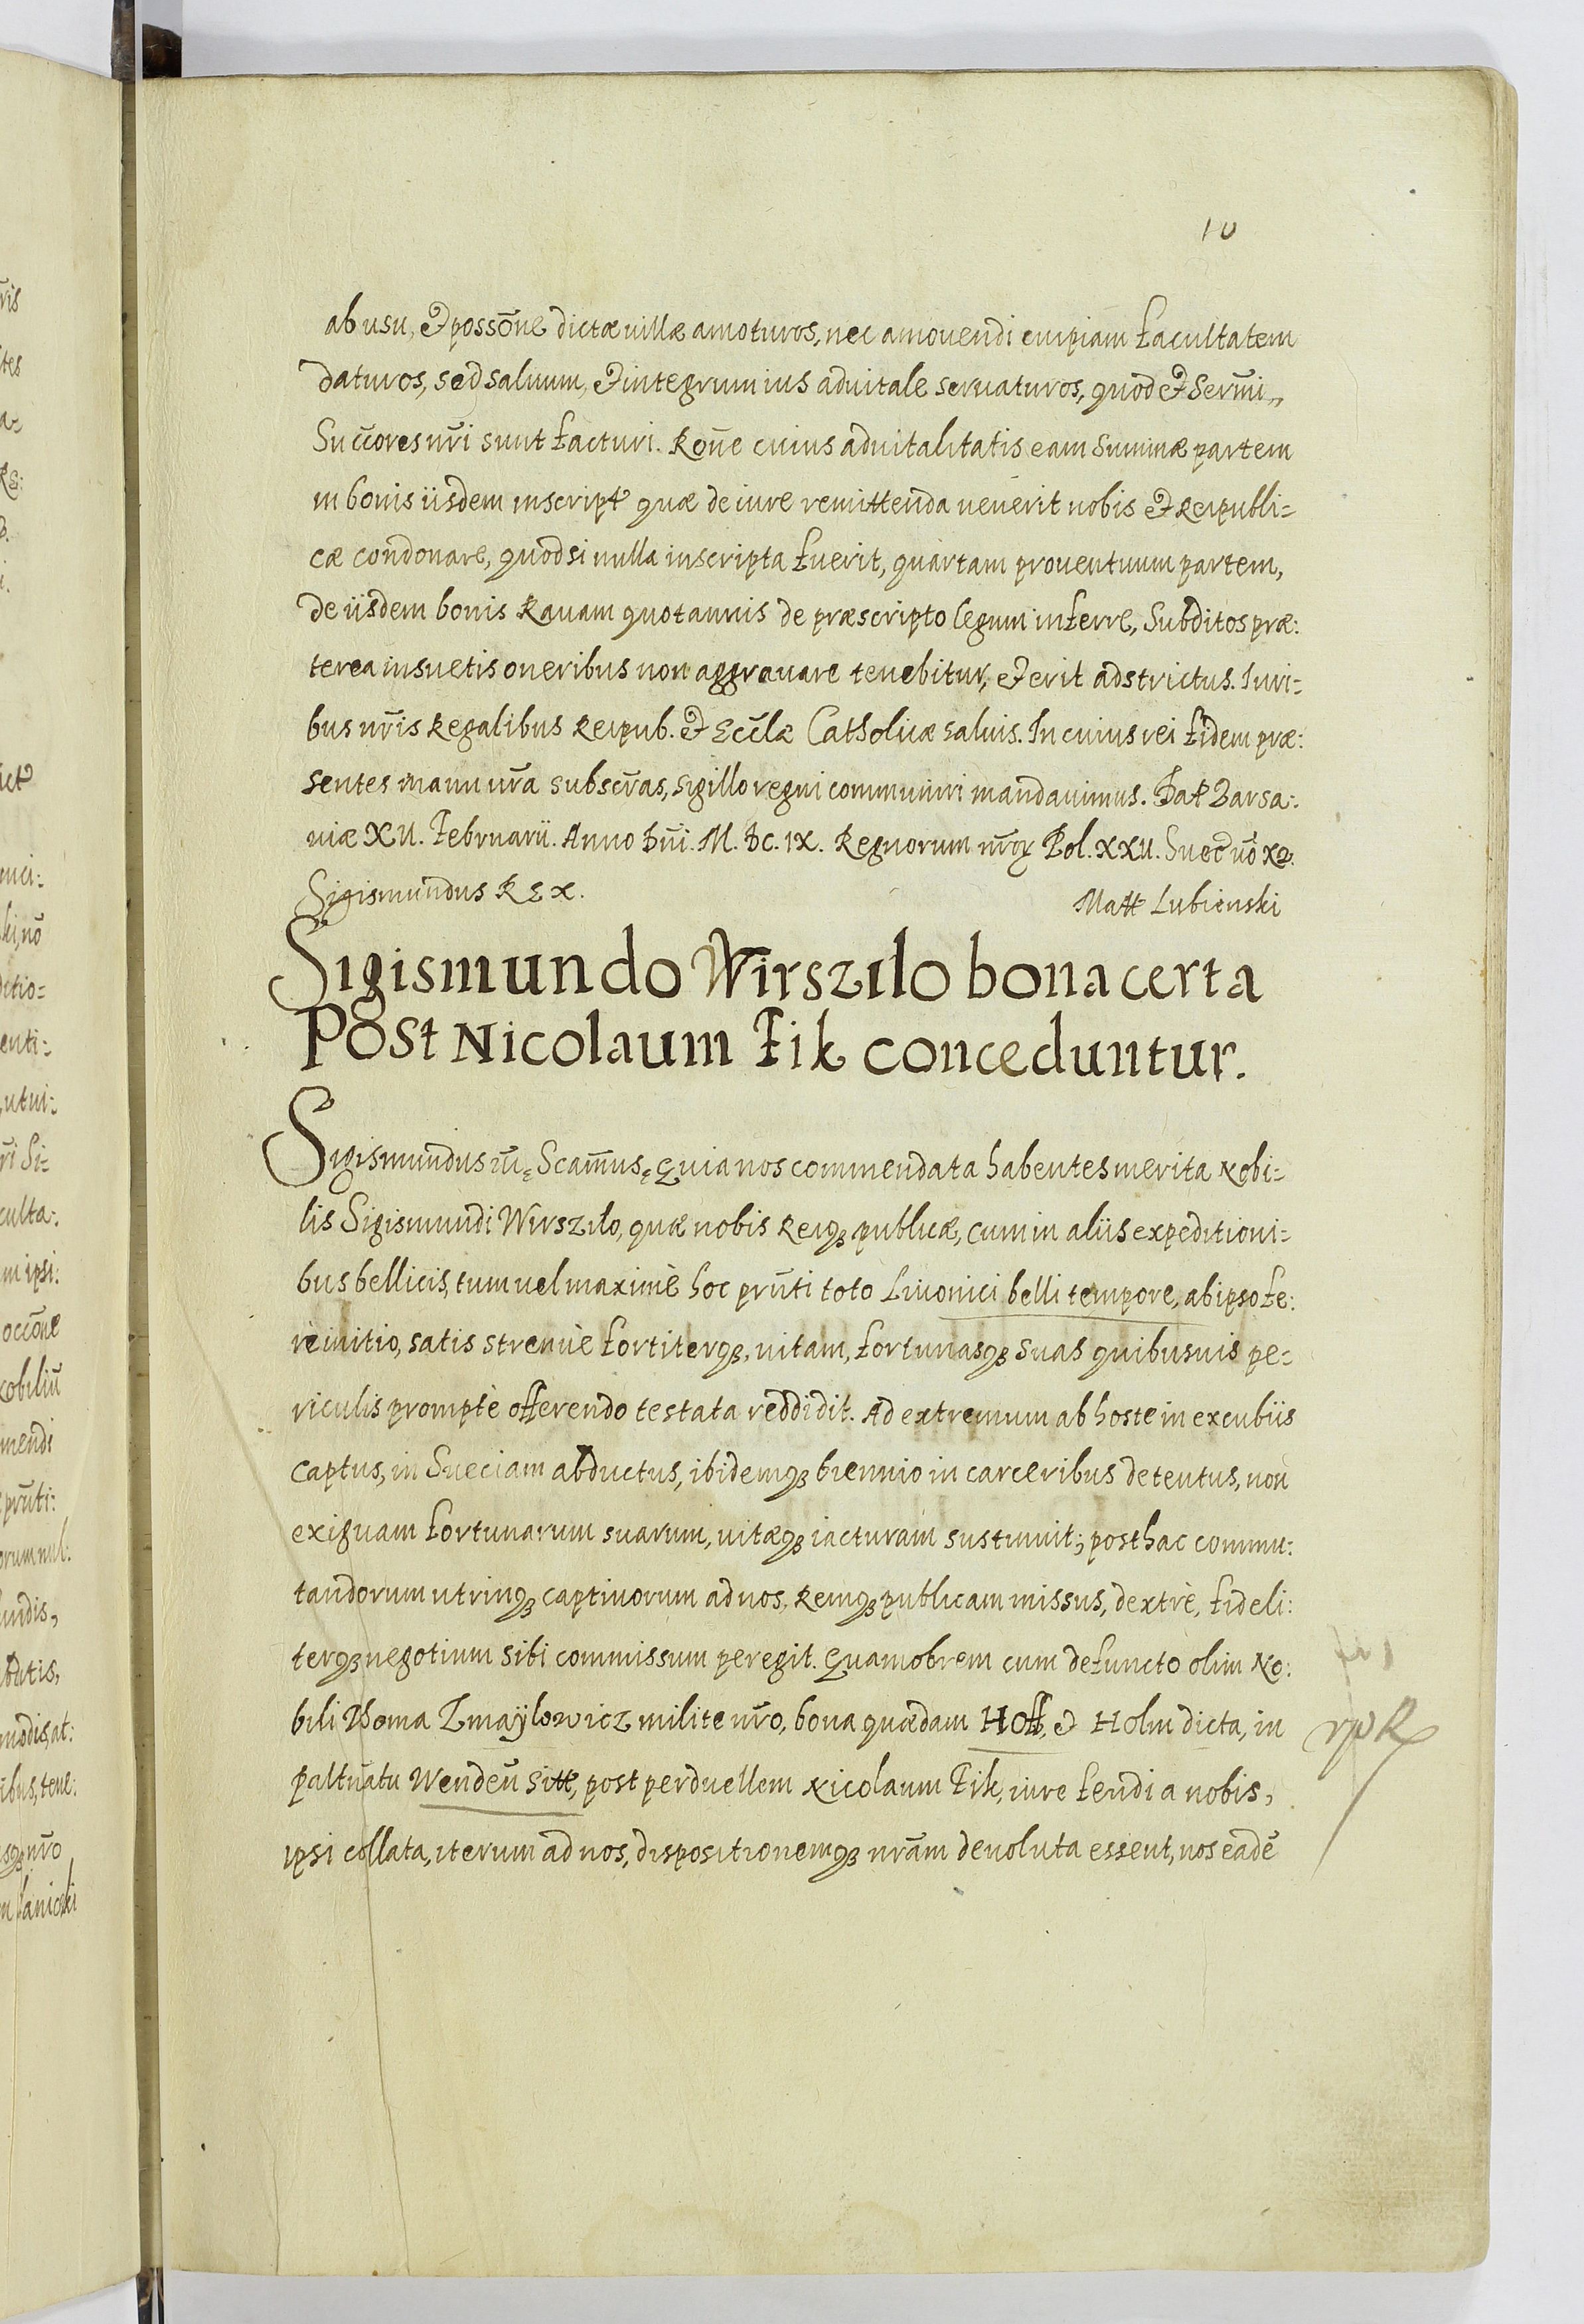 10
ab usu, et possōne dictæ uillæ amoturos, nec amouendi cuipiam facultatem
daturos, sed saluum, et integrum ius aduitale seruaturos, quod et Serm̄i„
Succ̄ores nr̄i sunt facturi. Rōne cuius aduitalitatis eam summæ partem
in bonis iisdem inscript quæ de iure remittenda uenerit nobis et Reipubli=
cæ condonare, quod si nulla inscripta fuerit, quartam prouentuum partem,
de iisdem bonis Rauam quotannis de præscripto legum inferre, Subditos præ:
terea insuetis oneribus non aggrauare tenebitur, et erit adstrictus. Iuri=
bus nr̄is Regalibus Reipub. et Eccl̄æ Catholicæ saluis. In cuius rei fidem præ:
sentes manu nr̄a subscr̄as, sigillo regni communiri mandauimus. Dat Varsa:
uiæ XV. Februarii. Anno Dn̄i. M. DC. IX. Regnorum nr̄oꝝ Pol. XXII. Suec uō XV.
Sigismundus REX.
Matt Lubienski
Sigismundo Wirszilo bona certa
Post Nicolaum Fik conceduntur.
Sigismundus m̄ę Scam̄usę Quia nos commendata habentes merita Nobi=
lis Sigismundi Wirszilo, quæ nobis Reiqꝫ publicæ, cum in aliis expeditioni=
bus bellicis, tum uel maximè hoc prn̄ti toto Liuonici belli tempore, ab ipso fe:
rè initio, satis strenuè fortiterqꝫ, uitam, fortunasqꝫ suas quibusuis pe=
riculis promptè offerendo testata reddidit. Ad extremum ab hoste in excubiis
captus, in Sueciam abductus, ibidemqꝫ biennio in carceribus detentus, non
exiguam fortunarum suarum, uitæqꝫ iacturam sustinuit; post hac commu:
tandorum utrinqꝫ captiuorum ad nos, Remqꝫ publicam missus, dextrè, fideli:
terqꝫ negotium sibi commissum peregit. Quamobrem cum defuncto olim No:
bili Thoma Zmaÿlowicz milite nr̄o, bona quædam Hoff, et Holm dicta, in
paltnatu Wenden̄ sitt, post perduellem Nicolaum Fik, iure feudi a nobis,
ipsi collata, iterum ad nos, dispositionemqꝫ nr̄am deuoluta essent, nos eadē